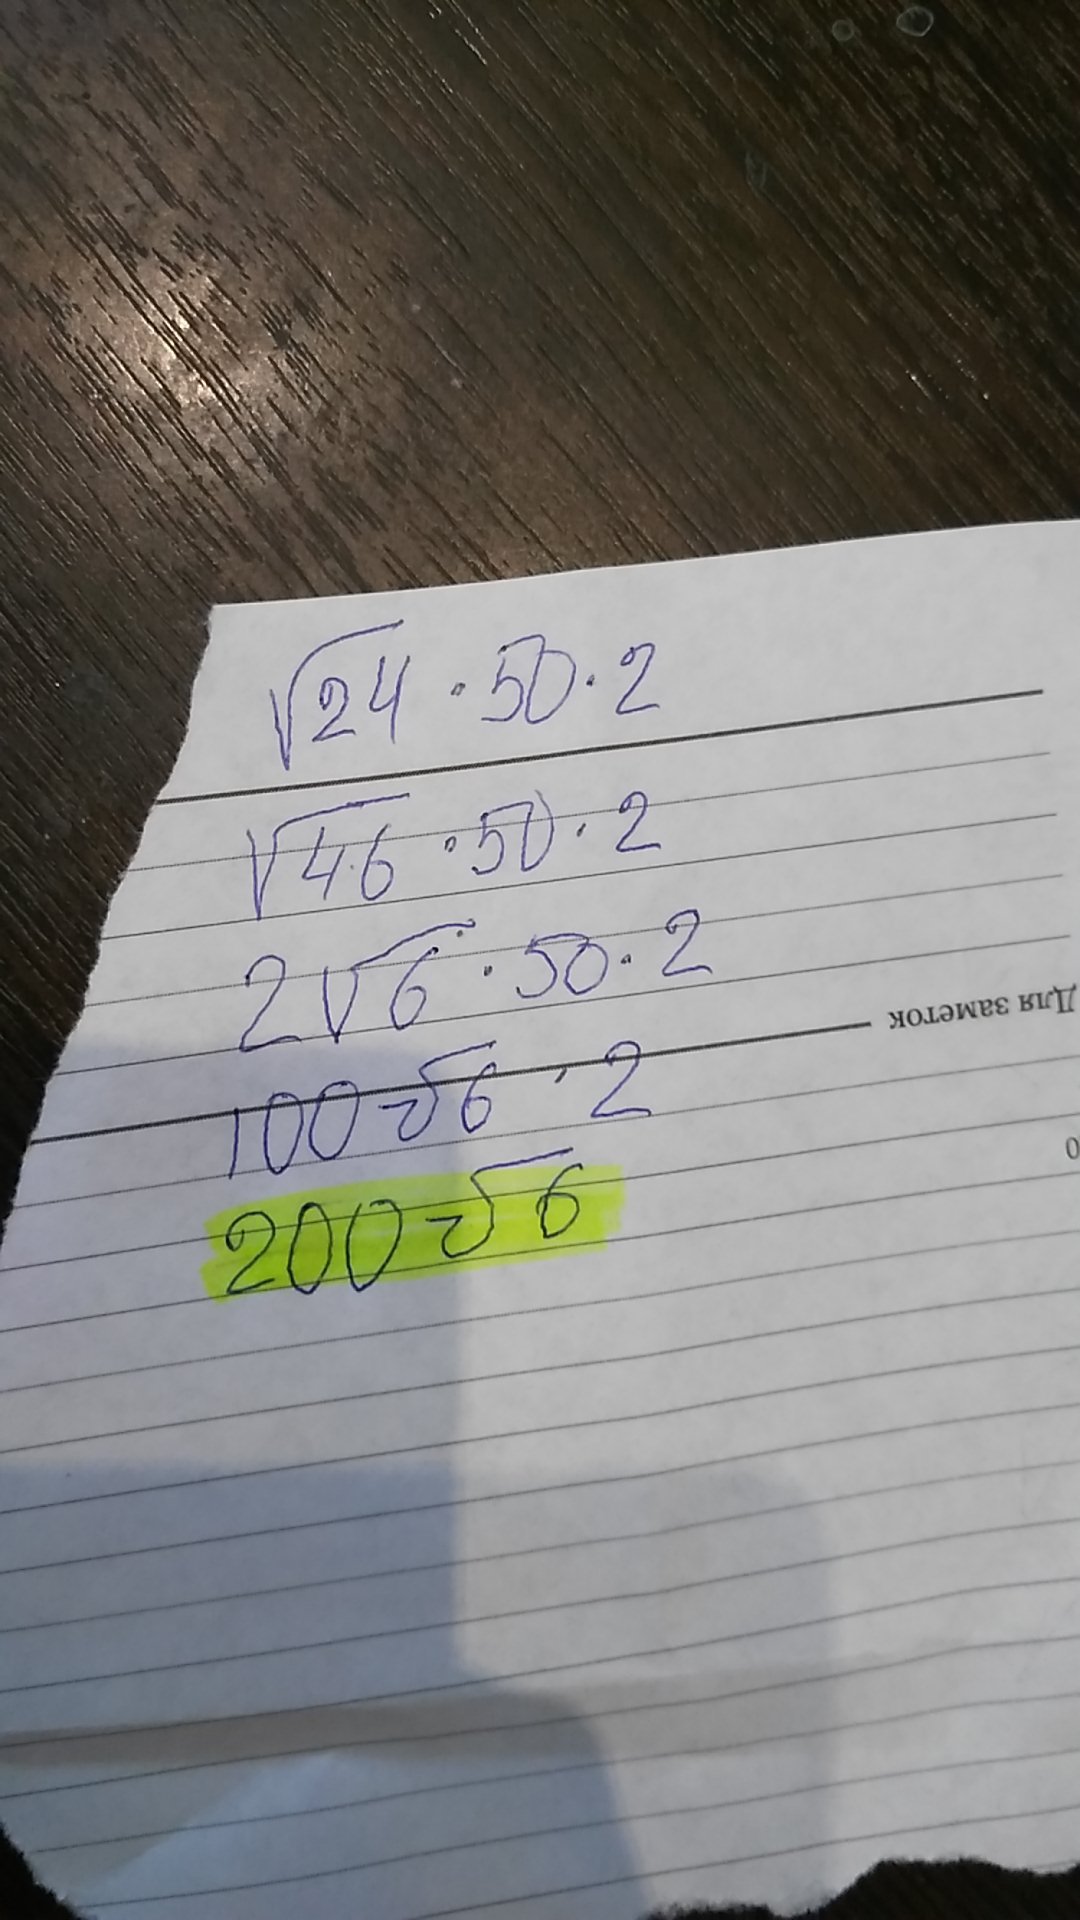 √24 · 50 · 2
√4·6 · 50 · 2
2√6 · 50 · 2
100√6 · 2
200√6
Для заметок